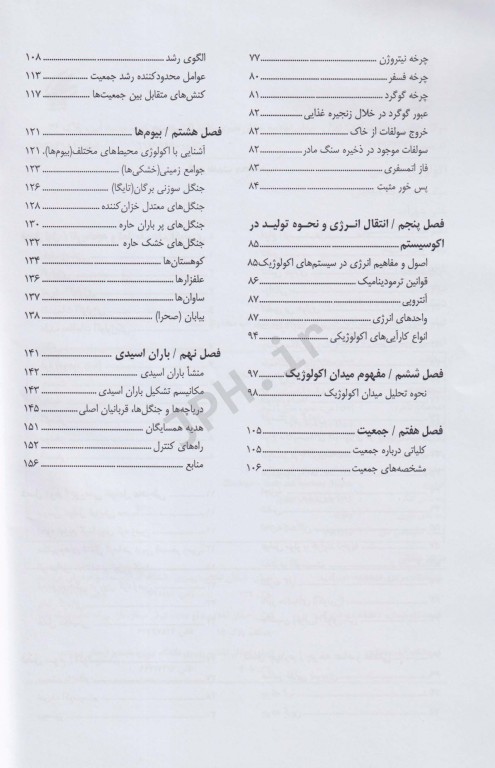 چرخه نیتروژن ۷۷
چرخه فسفر ۸۰
چرخه گوگرد ۸۱
عبور گوگرد در خلال زنجیره غذایی ۸۲
خروج سولفات از خاک ۸۲
سولفات موجود در ذخیره سنگ مادر ۸۲
فاز اتمسفری ۸۳
پس خور مثبت ۸۴
فصل پنجم / انتقال انرژی و نحوه تولید در
اکوسیستم ۸۵
اصول و مفاهیم انرژی در سیستم‌های اکولوژیک ۸۵
قوانین ترمودینامیک ۸۶
آنتروپی ۸۷
واحدهای انرژی ۸۷
انواع کارآیی‌های اکولوژیکی ۹۴
فصل ششم / مفهوم میدان اکولوژیک ۹۷
نحوه تحلیل میدان اکولوژیک ۹۸
فصل هفتم / جمعیت ۱۰۵
کلیاتی درباره جمعیت ۱۰۵
مشخصه‌های جمعیت ۱۰۶
الگوی رشد ۱۰۸
عوامل محدودکننده رشد جمعیت ۱۱۳
کنش‌های متقابل بین جمعیت‌ها ۱۱۷
فصل هشتم / بیوم‌ها ۱۲۱
آشنایی با اکولوژی محیط‌های مختلف(بیوم‌ها) ۱۲۱
جوامع زمینی(خشکی‌ها) ۱۲۳
جنگل سوزنی برگان(تایگا) ۱۲۶
جنگل‌های معتدل خزان‌کننده ۱۲۸
جنگل‌های پر باران حاره ۱۳۰
جنگل‌های خشک حاره ۱۳۲
کوهستان‌ها ۱۳۴
علفزارها ۱۳۶
ساوان‌ها ۱۳۷
بیابان (صحرا) ۱۳۸
فصل نهم / باران اسیدی ۱۴۱
منشأ باران اسیدی ۱۴۲
مکانیسم تشکیل باران اسیدی ۱۴۳
دریاچه‌ها و جنگل‌ها، قربانیان اصلی ۱۴۵
هدیه همسایگان ۱۵۱
راه‌های کنترل ۱۵۲
منابع ۱۵۶
JPH.ir